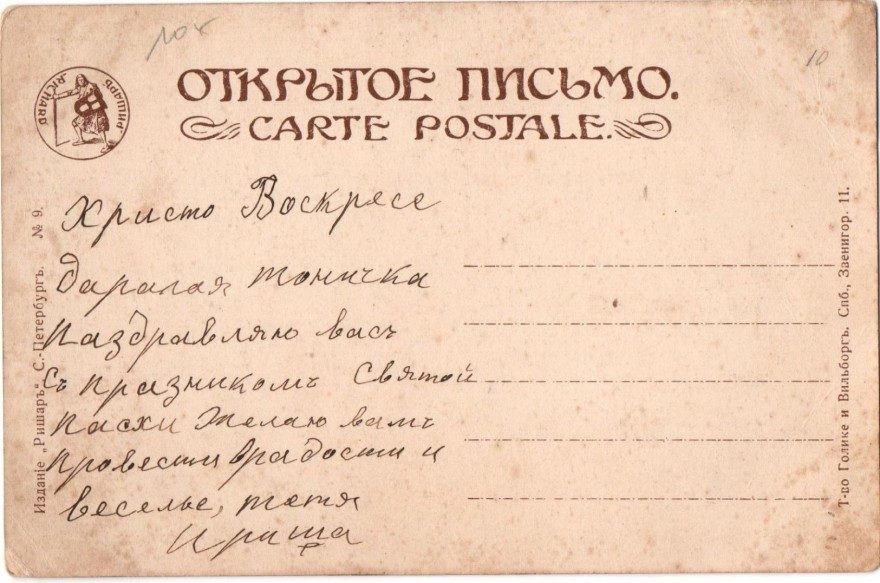 10
ОТКРЫТОЕ ПИСЬМО.
CARTE POSTALE.
„RICHARD“ „РИШАРЪ“
Христо Воскресе
даралая тоничка
Паздравляю васъ
съ празникомъ Святой
Пасхи Желаю вамъ
Провести врадости и
веселье, тетя
Ириша
Изданіе „Ришаръ“ С.-Петербургъ. № 9.
Т-во Голике и Вильборгъ. Спб., Звенигор. 11.